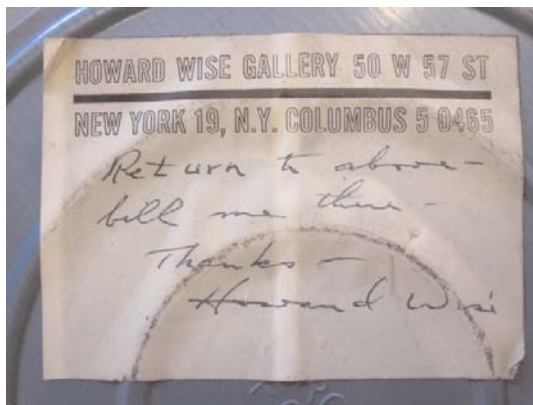 HOWARD WISE GALLERY 50 W 57 ST
NEW YORK 19, N.Y. COLUMBUS 5 0465
Return to above —
bill me there —
Thanks —
Howard Wise